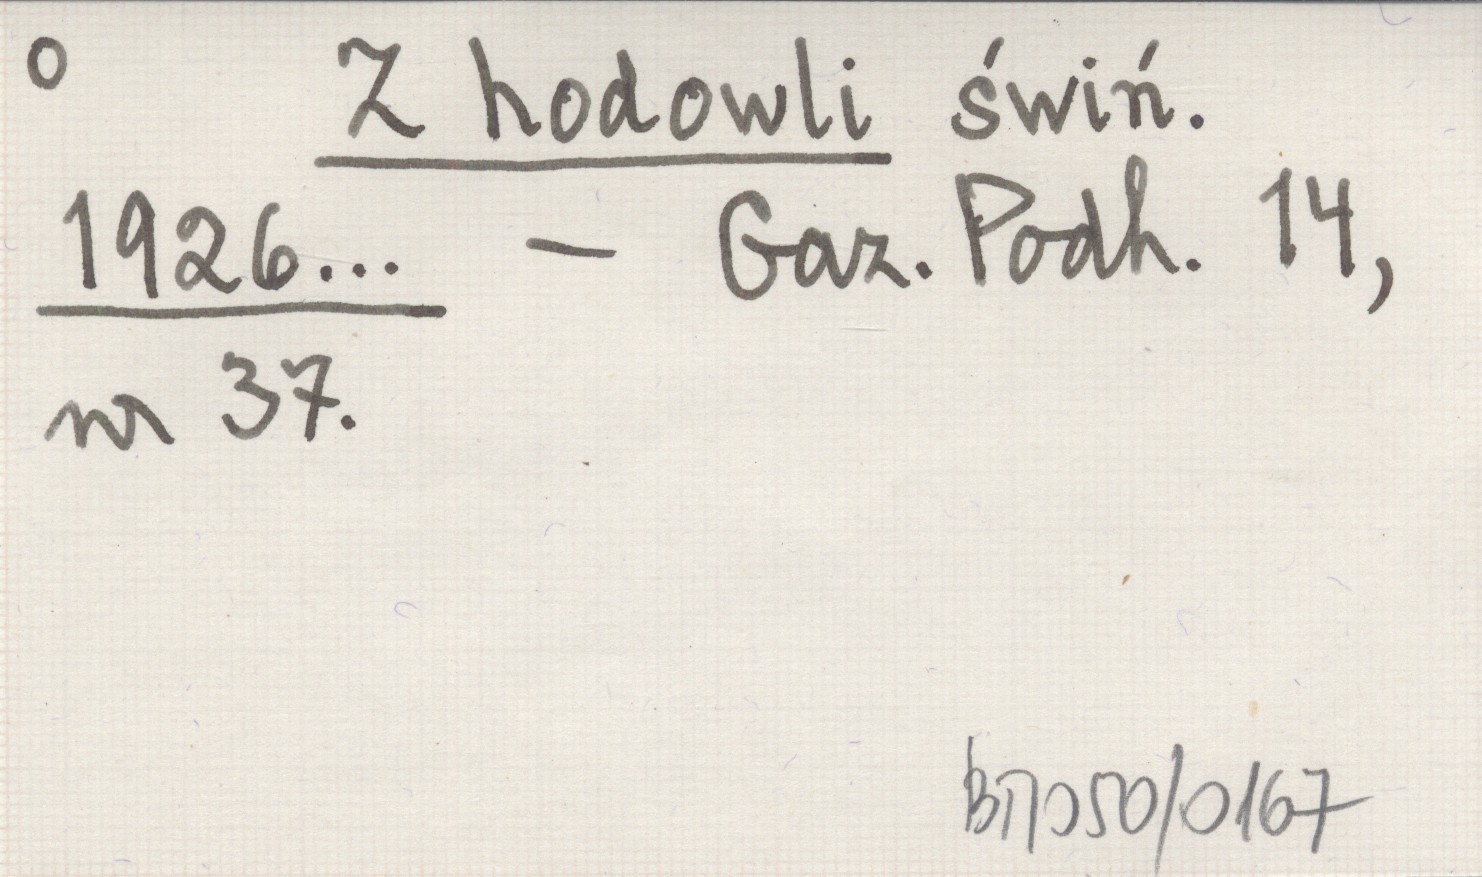 o Z hodowli świń.
1926... – Gaz. Podh. 14,
nr 37.